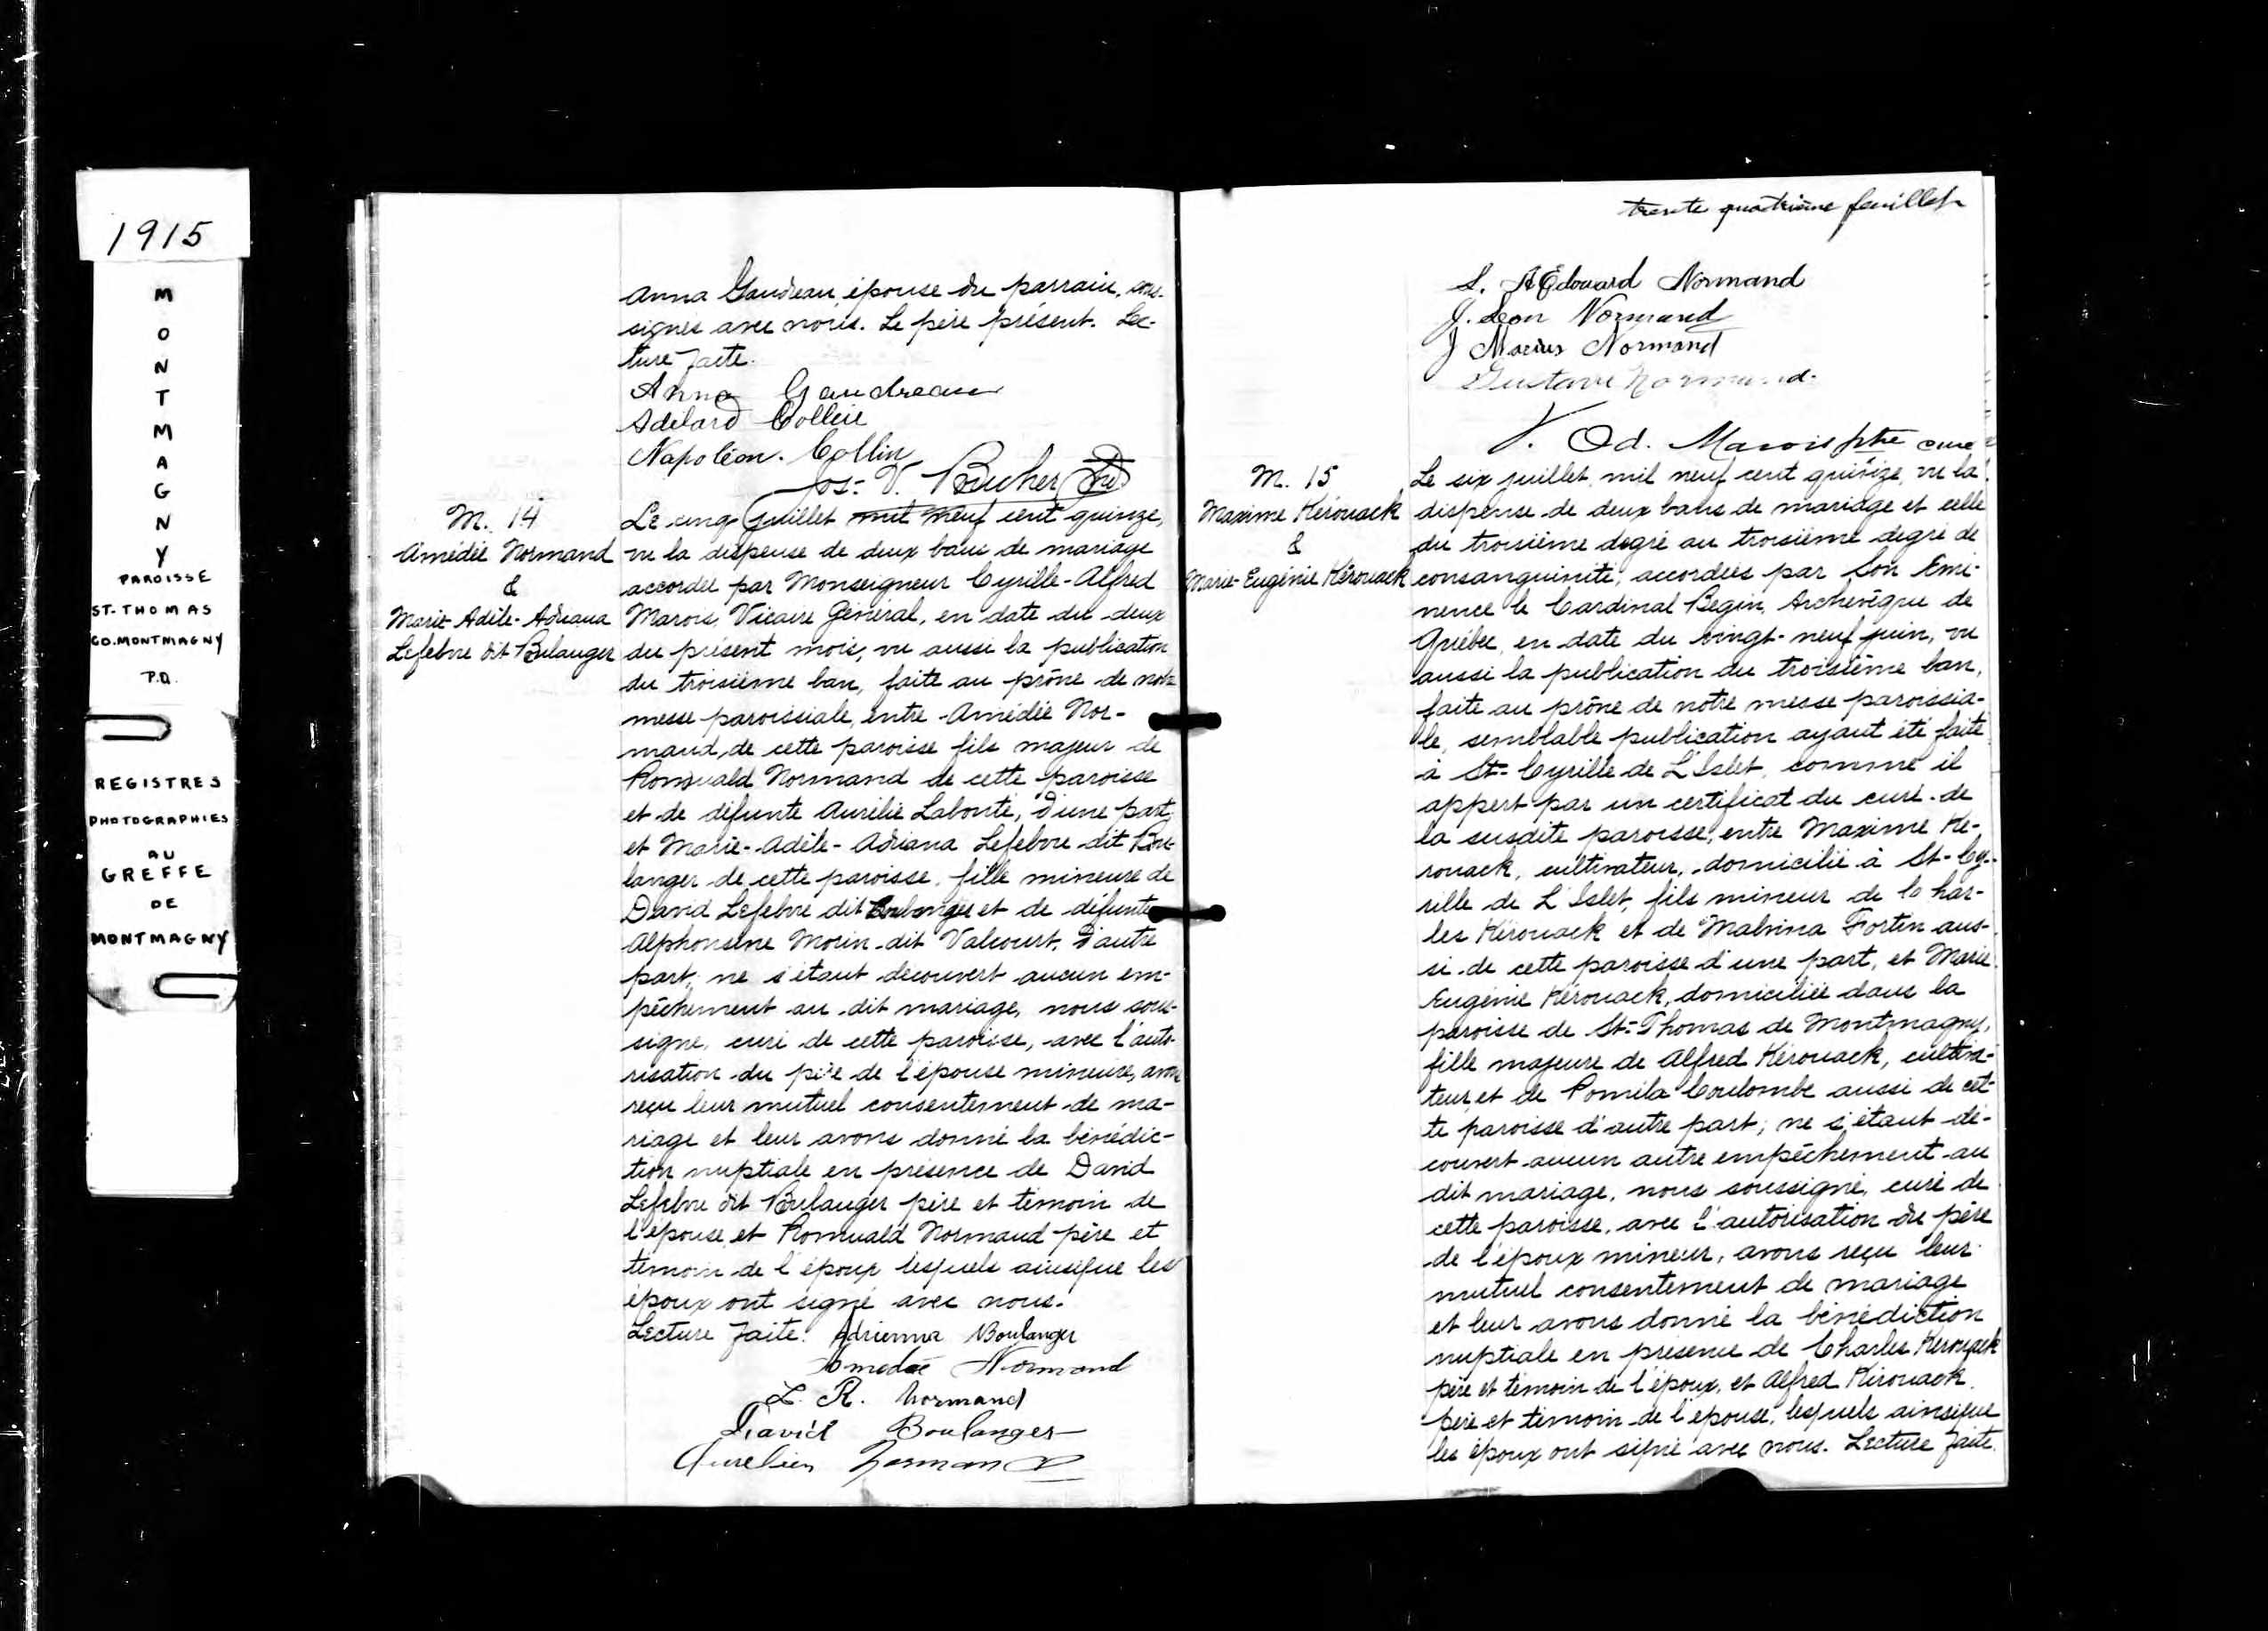 1915
MONTMAGNY
PAROISSE
ST-THOMAS
CO. MONTMAGNY
P.Q.
REGISTRES
PHOTOGRAPHIES
AU
GREFFE
DE
MONTMAGNY
Anna Gaudreau, épouse du parrain, sous-
signés avec nous. Le père présent. Lec-
ture faite.
Anna Gaudreau
Adélard Collin
Napoléon. Collin
Jos: V. Boucher
M. 14
Amédée Normand
&
Marie-Adèle-Adriana
Lefebvre dit Boulanger
Le cinq juillet mil neuf cent quinze,
vu la dispense de deux bans de mariage
accordée par Monseigneur Cyrille-Alfred
Marois, Vicaire Général, en date du deux
du présent mois, vu aussi la publication
du troisième ban, faite au prône de notre
messe paroissiale, entre Amédée Nor-
mand, de cette paroisse fils majeur de
Romuald Normand de cette paroisse
et de défunte Aurélie Labonté, d'une part,
et Marie-Adèle-Adriana Lefebvre dit Bou-
langer de cette paroisse, fille mineure de
David Lefebvre dit Boulanger et de défunte
Alphonsine Morin dit Valcourt, d'autre
part, ne s'étant découvert aucun em-
pêchement au dit mariage, nous sous-
signé, curé de cette paroisse, avec l'auto-
risation du père de l'épouse mineure, avons
reçu leur mutuel consentement de ma-
riage et leur avons donné la bénédic-
tion nuptiale en présence de David
Lefebvre dit Boulanger père et témoin de
l'épouse, et Romuald Normand père et
témoin de l'époux lesquels ainsi que les
époux ont signé avec nous.
Lecture faite. Adrienna Boulanger
Amedée Normand
L. R. Normand
David Boulanger
Aurelien Normand
trente quatrième feuillet
S. A Edouard Normand
J. Leon Normand
J Marius Normand
Gustave Normand.
V. Od. Marois ptre curé
M. 15
Maxime Kérouack
&
Marie-Eugénie Kérouack
Le six juillet mil neuf cent quinze, vu la
dispense de deux bans de mariage et celle
du troisième degré au troisième degré de
consanguinité, accordées par Son Emi-
nence le Cardinal Bégin, Archevêque de
Québec, en date du vingt-neuf juin, vu
aussi la publication du troisième ban,
faite au prône de notre messe paroissia-
le, semblable publication ayant été faite
à St-Cyrille de L'Islet, comme il
appert par un certificat du curé de
la susdite paroisse, entre Maxime Ké-
rouack, cultivateur, domicilié à St-Cy-
rille de L'Islet, fils mineur de Char-
les Kérouack et de Malvina Fortin aus-
si de cette paroisse d'une part, et Marie
Eugénie Kérouack, domiciliée dans la
paroisse de St-Thomas de Montmagny,
fille majeure de Alfred Kérouack, cultiva-
teur, et de Roméla Coulombe aussi de cet-
te paroisse d'autre part; ne s'étant dé-
couvert aucun autre empêchement au
dit mariage, nous soussigné, curé de
cette paroisse, avec l'autorisation du père
de l'époux mineur, avons reçu leur
mutuel consentement de mariage
et leur avons donné la bénédiction
nuptiale en présence de Charles Kérouack
père et témoin de l'époux, et Alfred Kérouack
père et témoin de l'épouse, lesquels ainsi que
les époux ont signé avec nous. Lecture faite.